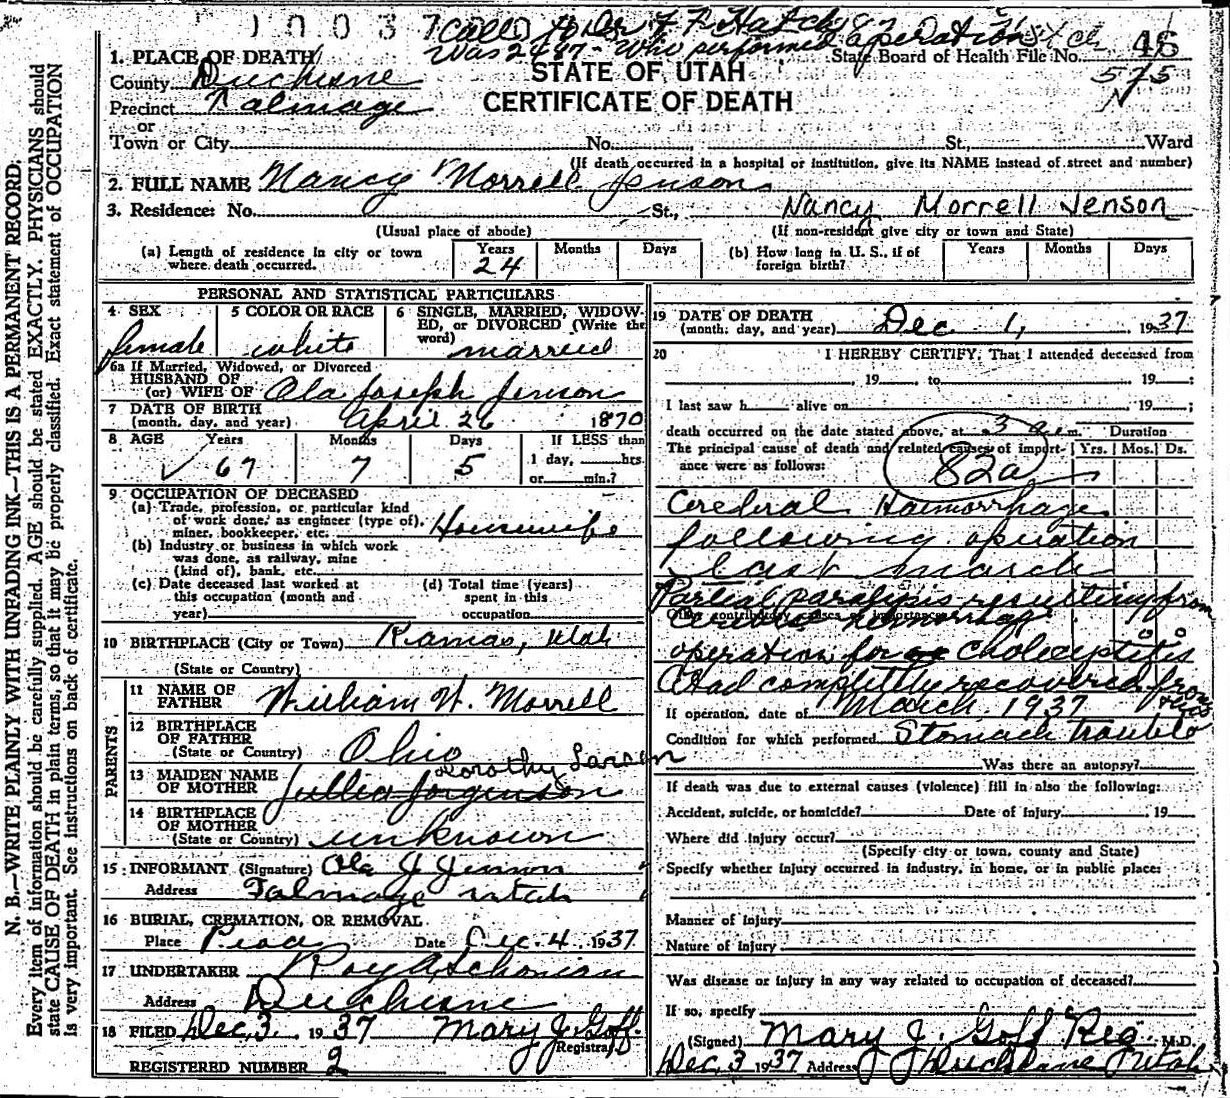 1 0 0 3 7
Call to Dr F F Hatch operation
Was 2487 - who performed
46
1. PLACE OF DEATH
State Board of Health File No.
575
County Duchesne
STATE OF UTAH
Precinct Talmage
CERTIFICATE OF DEATH
or
Town or City No. St., Ward
(If death occurred in a hospital or institution, give its NAME instead of street and number)
2. FULL NAME Nancy Morrell Jenson
3. Residence: No. St., Nancy Morrell Jenson
(Usual place of abode) (If non-resident give city or town and State)
(a) Length of residence in city or town where death occurred. Years 24 Months Days
(b) How long in U. S., if of foreign birth? Years Months Days
PERSONAL AND STATISTICAL PARTICULARS
4 SEX female
5 COLOR OR RACE white
6 SINGLE, MARRIED, WIDOWED, or DIVORCED (Write the word) married
6a If Married, Widowed, or Divorced
HUSBAND OF
(or) WIFE OF Ola Joseph Jenson
7 DATE OF BIRTH
(month, day, and year) April 26 1870
8 AGE Years 67 Months 7 Days 5
If LESS than
1 day, hrs.
or min.?
9 OCCUPATION OF DECEASED
(a) Trade, profession, or particular kind
of work done, as engineer (type of),
miner, bookkeeper, etc. Housewife
(b) Industry or business in which work
was done, as railway, mine
(kind of), bank, etc.
(c) Date deceased last worked at
this occupation (month and
year)
(d) Total time (years)
spent in this
occupation
10 BIRTHPLACE (City or Town) Kamas, Utah
(State or Country)
PARENTS
11 NAME OF
FATHER William W. Morrell
12 BIRTHPLACE
OF FATHER
(State or Country) Ohio
13 MAIDEN NAME
OF MOTHER Dorothy Larsen
14 BIRTHPLACE
OF MOTHER
(State or Country) unknown
15 INFORMANT (Signature) Ola J Jenson
Address Talmage utah
16 BURIAL, CREMATION, OR REMOVAL
Place Date Dec. 4 1937
17 UNDERTAKER Roy A Schonian
Address Duchesne
18 FILED Dec, 3. 1937 Mary J. Goff.
Registrar
REGISTERED NUMBER 2
19 DATE OF DEATH
(month, day, and year) Dec 1, 1937
20 I HEREBY CERTIFY, That I attended deceased from
, 19 , to , 19 ;
I last saw h alive on , 19 ;
death occurred on the date stated above, at 3 a. m.
Duration
The principal cause of death and related causes of importance were as follows: Yrs. Mos. Ds.
82a
Cerebral Haemorrhage
following operation
last march
Partial paralysis resulting from
Other contributory causes of importance:
Cerebral hemorrhage
operation for Cholecystitis
Had completely recovered from this
If operation, date of March 1937
Condition for which performed Stomach trouble
Was there an autopsy?
If death was due to external causes (violence) fill in also the following:
Accident, suicide, or homicide? Date of injury 19
Where did injury occur?
(Specify city or town, county and State)
Specify whether injury occurred in industry, in home, or in public place:
Manner of Injury
Nature of Injury
Was disease or injury in any way related to occupation of deceased?
If so, specify
(Signed) Mary J. Goff Reg. M.D.
Dec, 3 1937 Address Duchesne, Utah
N. B.—WRITE PLAINLY WITH UNFADING INK—THIS IS A PERMANENT RECORD.
Every item of information should be carefully supplied. AGE should be stated EXACTLY. PHYSICIANS should
state CAUSE OF DEATH in plain terms, so that it may be properly classified. Exact statement of OCCUPATION
is very important. See instructions on back of certificate.